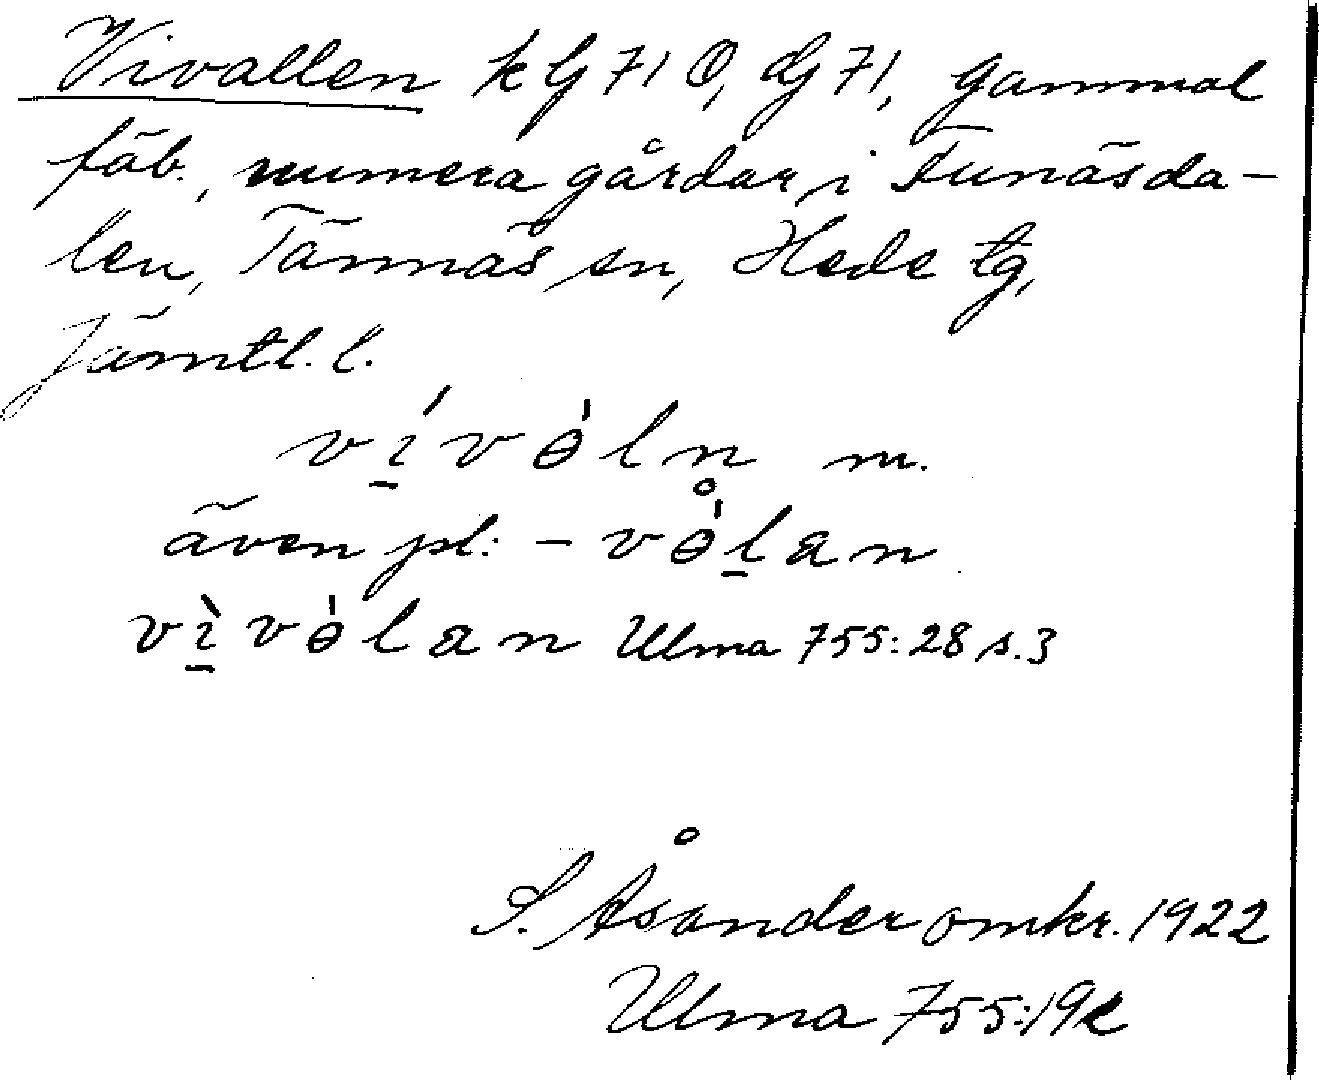 Vivallen k G 71 Ö, dG 71, gammal
fäb., numera gårdar, i Funäsda-
len, Tännäs sn, Hede tg,
Jämtl. l.
vívəln m.
även pl: – vəlan
vìvəlan Ulma 755:28 s. 3
S. Åsander omkr. 1922
Ulma 755:19